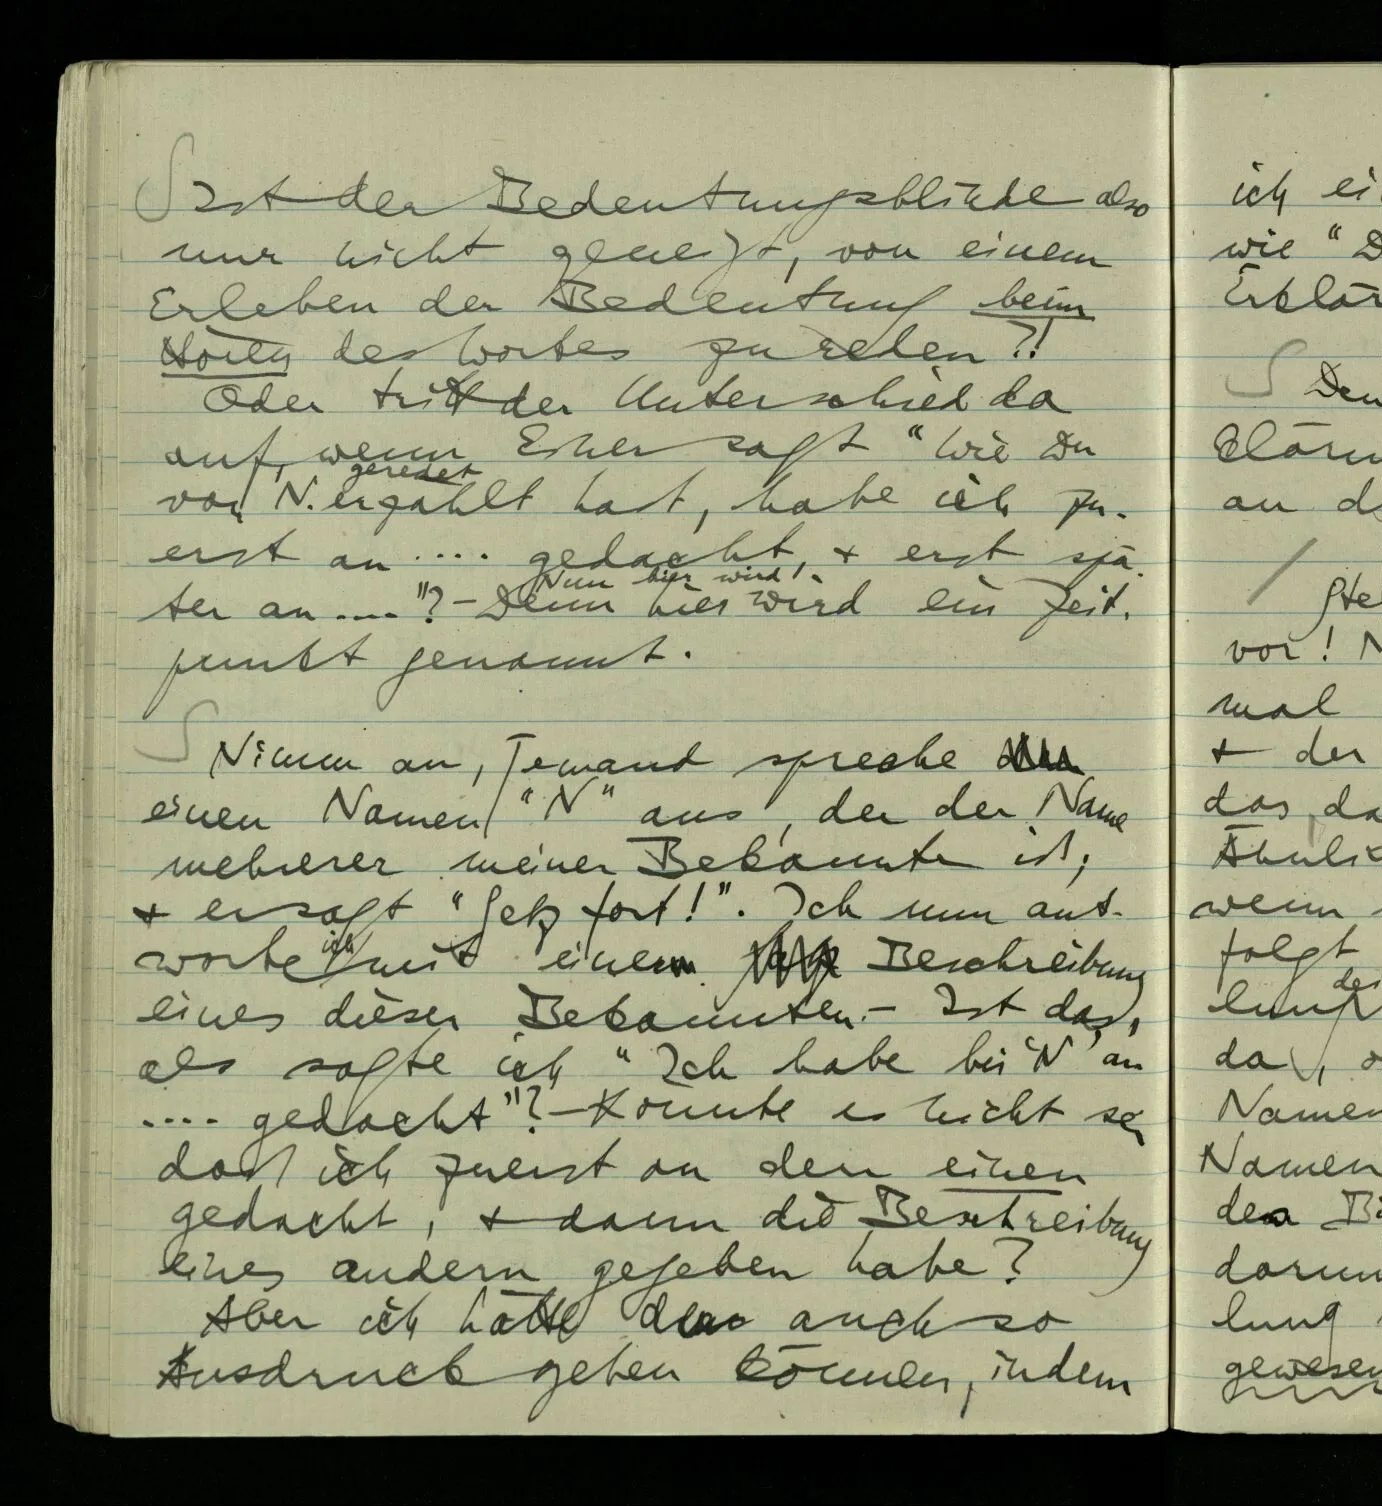 Ist der Bedeutungsblinde also
nur nicht geneigt, von einem
Erleben der Bedeutung beim
Hören des Wortes zu reden?!
Oder tritt der Unterschied da
auf, wenn Einer sagt “Wie Du
geredet
von N. erzählt hast, habe ich zu-
erst an .... gedacht, + erst spä-
Nun hier wird
ter an ....”? – Denn hier wird ein Zeit-
punkt genannt.
Nimm an, Jemand spreche
einen Namen “N” aus, der der Name
mehrerer meiner Bekannte ist;
+ er sagt “Setz fort!”. Ich nun ant-
ich
worte mit einem Beschreibung
eines dieser Bekannten. – Ist das,
als sagte ich “Ich habe bei ‘N’ an
.... gedacht”? – Konnte es nicht sein
daß ich zuerst an den einen
gedacht, + dann die Beschreibung
eines andern gegeben habe?
Aber ich hätte dem auch so
Ausdruck geben können, indem
ich ei
wie “D
Erklär
Den
klärun
an d
Ste
vor! N
mal
+ der
das, da
Ähnlic
wenn
folgt
der
lung
da, o
Namen
Namen
den Bi
darum
lung
gewesen